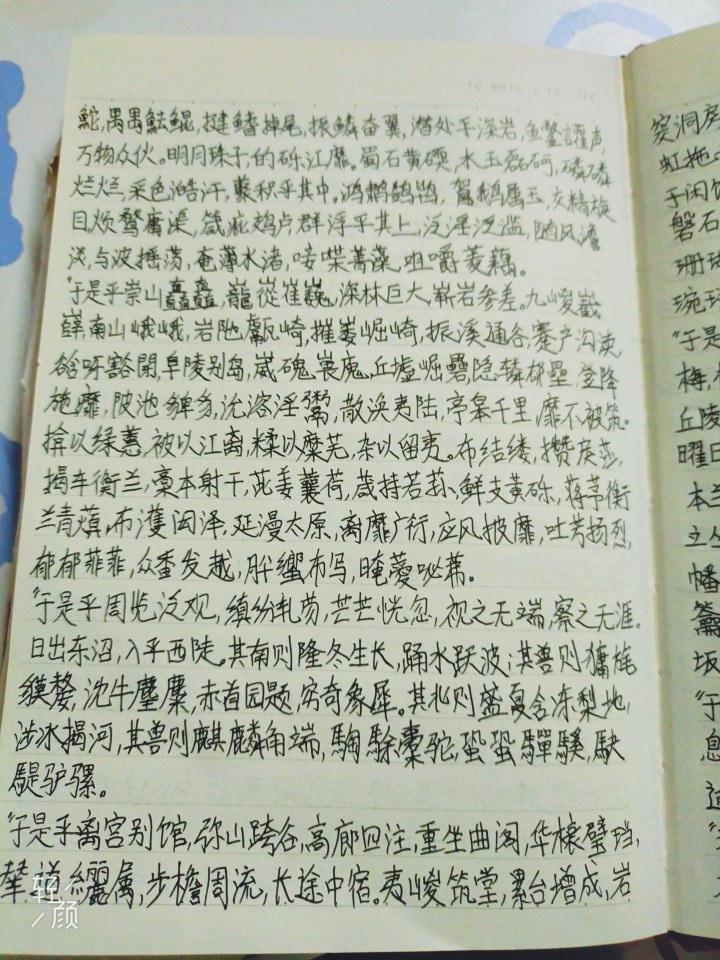 鮀,禺禺魼鳎,揵鳍掉尾,振鳞奋翼,潜处乎深岩,鱼鳖讙声,
万物众伙。明月珠子,的砾江靡。蜀石黄碝,水玉磊砢,磷磷
烂烂,采色澔汗,藂积乎其中。鸿鹔鹄鸨,鴐鹅属玉,交精旋
目,烦鹜庸渠,箴疵鵁卢,群浮乎其上,泛淫泛滥,随风澹
淡,与波摇荡,奄薄水渚,唼喋菁藻,咀嚼菱藕。
"于是乎崇山矗矗,巃嵸崔巍,深林巨木,崭岩参差。九嵏巀
嶭,南山峨峨,岩陁甗崎,摧崣崛崎,振溪通谷,蹇产沟渎,
谽呀豁閕,阜陵别岛,崴磈嵔廆,丘墟崛礨,隐辚郁壘,登降
施靡,陂池貏豸,沇溶淫鬻,散涣夷陆,亭皋千里,靡不被筑。
揜以绿蕙,被以江离,糅以蘪芜,杂以留夷。布结缕,攒戾莎,
揭车衡兰,稾本射干,茈姜蘘荷,葴持若荪,鲜支黄砾,蒋苧
兰青薠,布濩闳泽,延漫太原,离靡广衍,应风披靡,吐芳扬烈,
郁郁菲菲,众香发越,肸蠁布写,晻薆咇茀。
"于是乎周览泛观,缜纷轧芴,芒芒恍忽,视之无端,察之无涯。
日出东沼,入乎西陂。其南则隆冬生长,踊水跃波;其兽则㺎旄
貘嫠,沈牛麈麋,赤首园题,穷奇象犀。其北则盛夏含冻裂地,
涉冰揭河,其兽则麒麟角端,騊駼橐驼,蛩蛩驒騱,駃
騠驴骡。
"于是乎离宫别馆,弥山跨谷,高廊四注,重坐曲阁,华榱璧珰,
辇道纚属,步檐周流,长途中宿。夷嵏筑堂,累台增成,岩
突洞房
虹拖
于闲
磐石
珊瑚
琬琰
"于是
梅,
丘陵
曜日
本
之
幡
坂
"于
息
轻颜